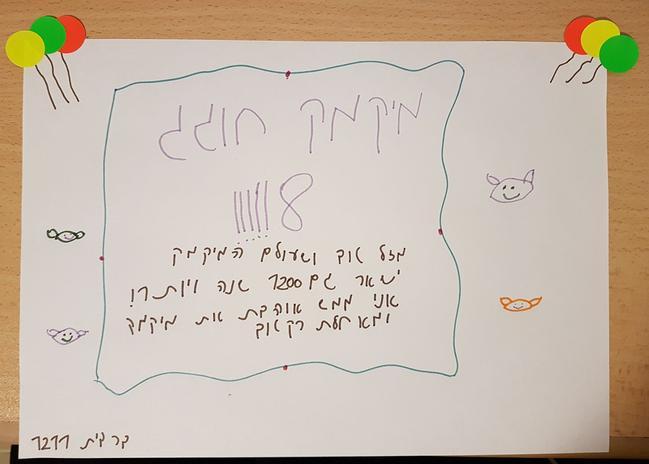 מיקמק חוגג
8!!!!!!
מזל טוב ושעולם המיקמק
ישאר גם 1200 שנה ויותר!!
אני ממש אוהבת את מיקמק
ומאחלת רק טוב
1211